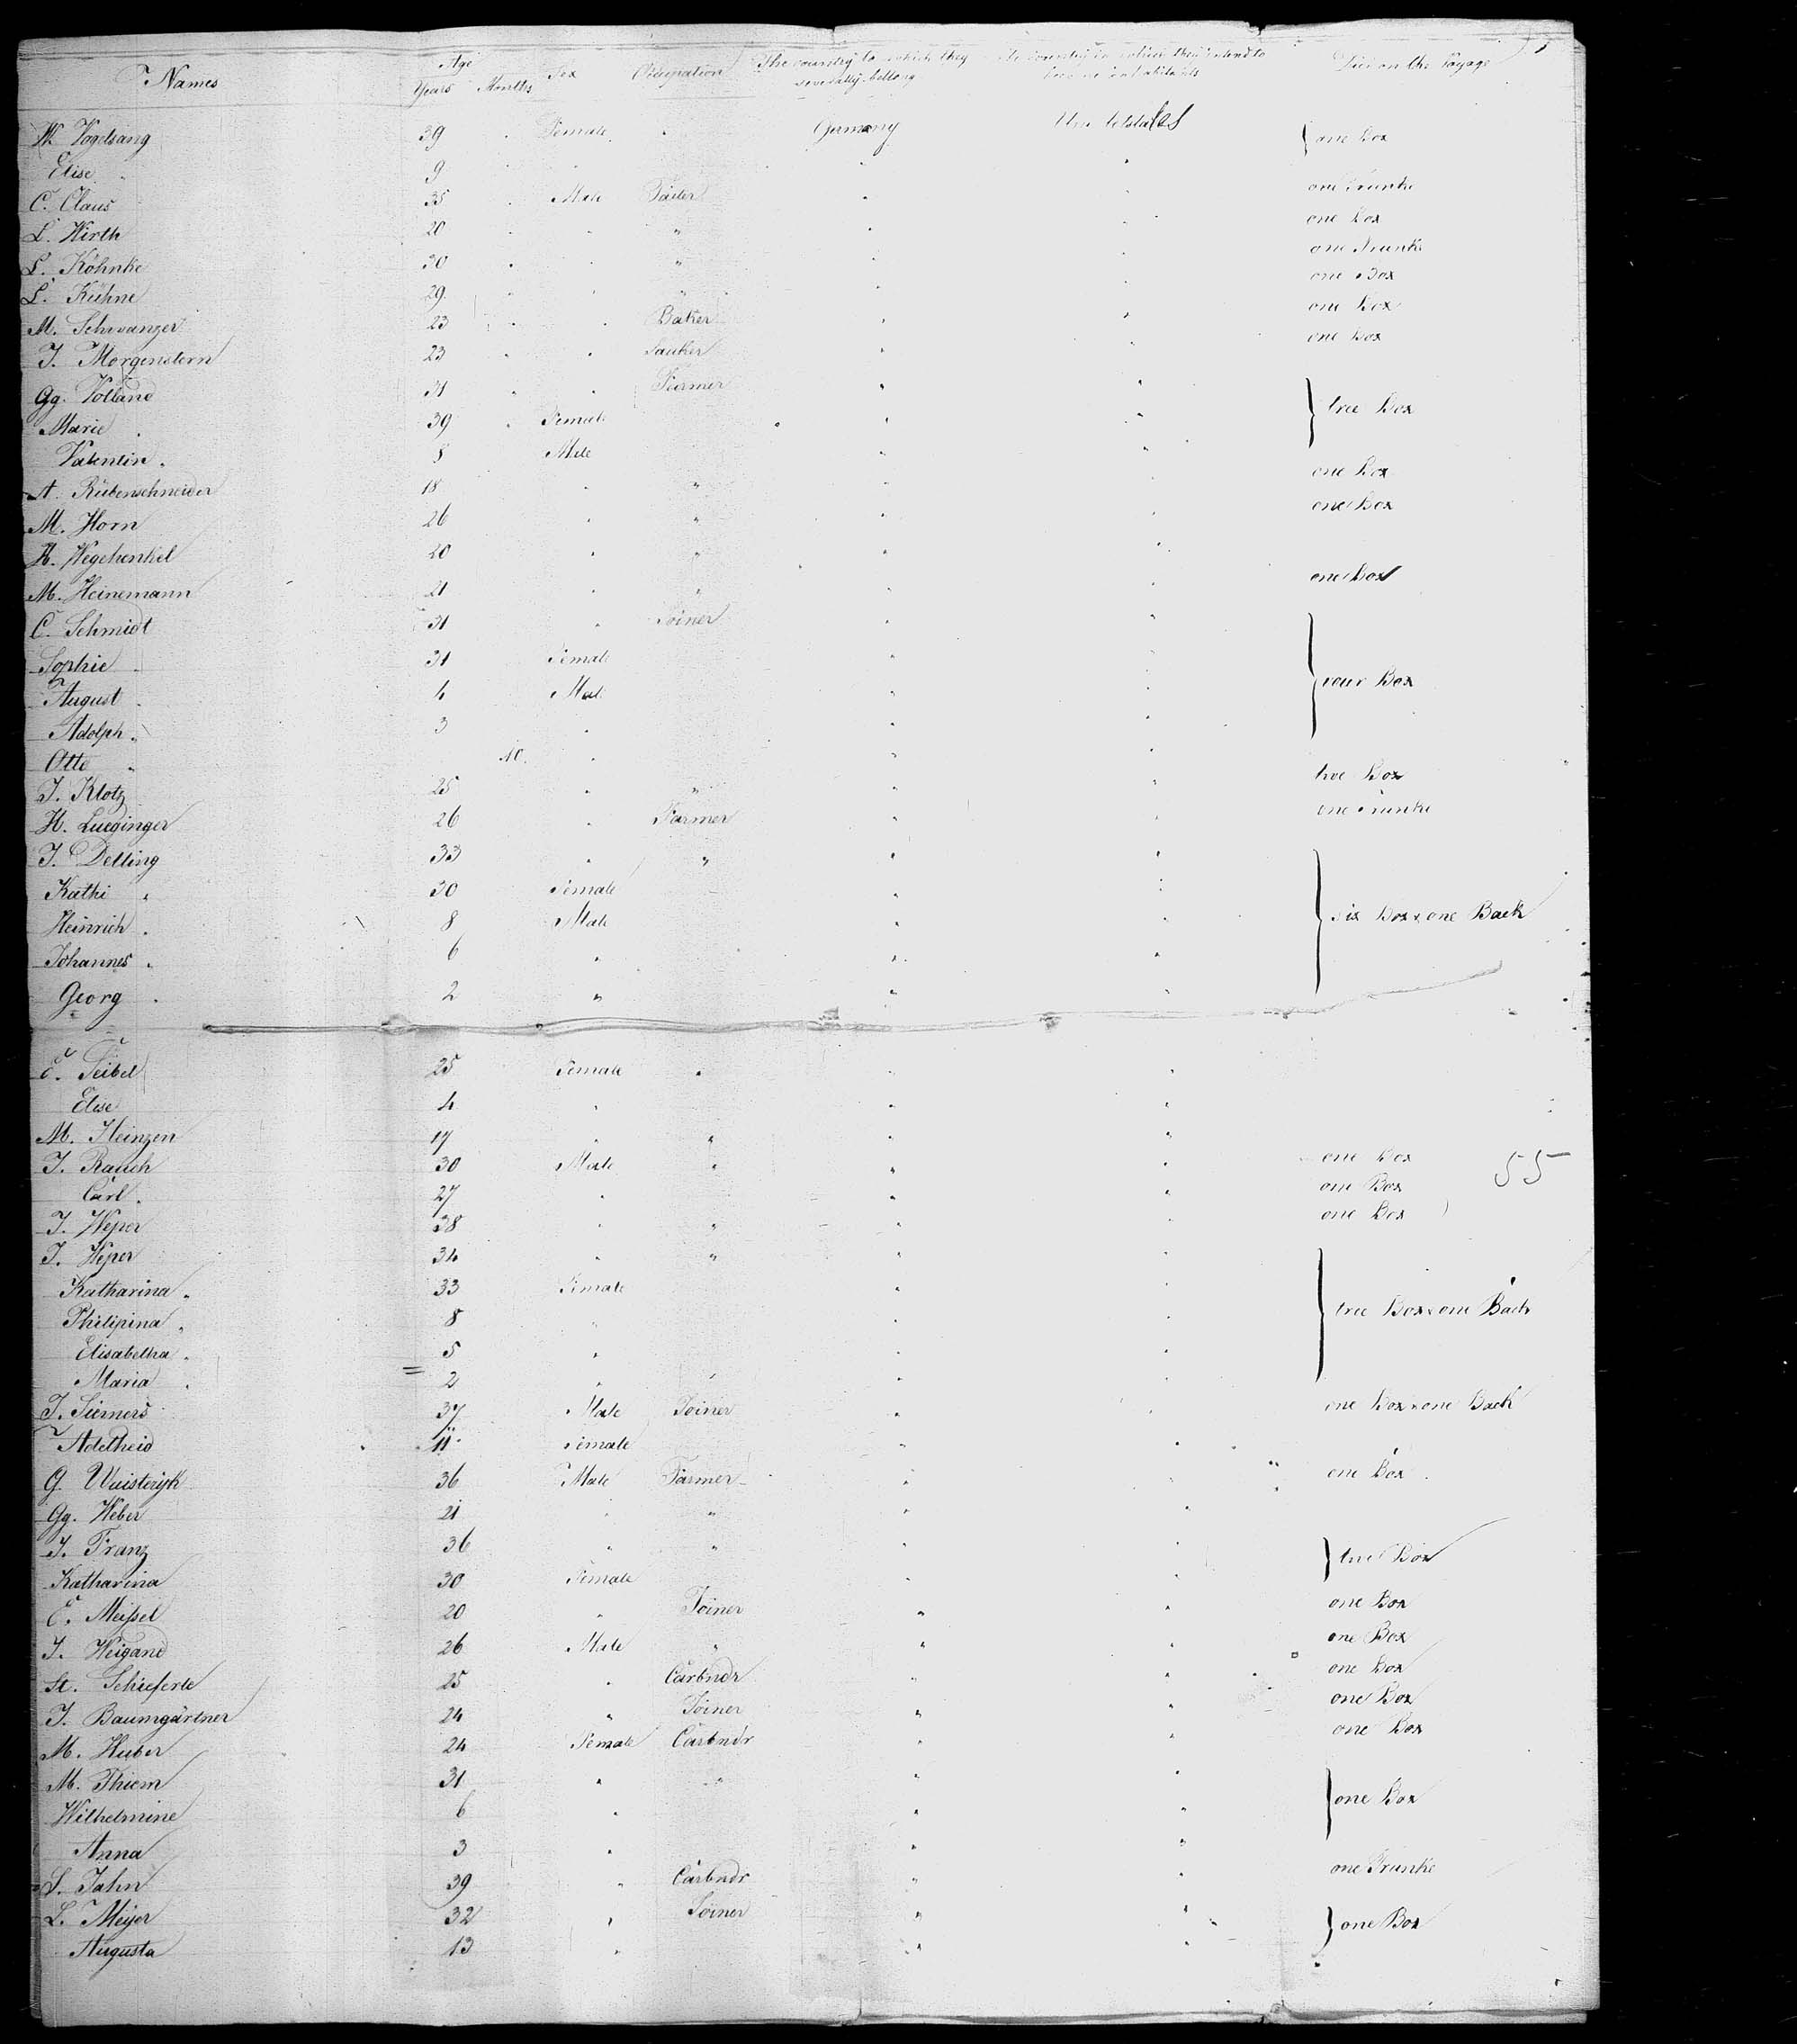 Names Age Years Months Sex Occupation The country to which they severally belong The country in which they intend to become inhabitants Died on the Voyage
W. Vogelsang 39 Female Germany United states } one Box
Elise 9
C. Claus 35 Male one Trunke
L. Hirth 20 " one Box
L. Köhnke 30 " one Trunke
L. Kühne 29 " one Box
M. Schwanzer 23 Baker one Box
J. Morgenstern 23 one Box
Gg. Volland 31 Farmer } tree Box
Marie 39 Female
Valentin 8 Male
A. Rübenschneider 18 " one Box
M. Horn 26 " one Box
H. Wegehenkel 20 "
M. Heinemann 21 " one Box
C. Schmidt 31 Joiner } vour Box
Sophie 31 Female
August 4 Male
Adolph 3
Otto 10
J. Klotz 25 " Box
H. Lueginger 26 Farmer one Trunke
J. Delling 33 " } six Box & one Back
Kathi 30 Female
Heinrich 8 Male
Johannes 6
Georg 2 "
E. Seibel 25 Female
Elise 4
M. Heinzen 17 "
J. Rauch 30 Male " one Box
Carl 27 one Box 55
J. Weper 38 " one Box
J. Weper 34 " } tree Box & one Back
Katharina 33 Female
Philipina 8
Elisabetha 5
Maria 2
J. Siemers 37 Male Joiner one Box & one Back
Adelheid 11 Female
G. 36 Male Farmer one Box
Gg. Weber 21 "
J. Franz 36 " } Box
Katharina 30 Female
E. Meißel 20 " Joiner one Box
J. Weigand 26 Male " one Box
St. Schieferle 25 Carbndr one Box
J. Baumgärtner 24 " Joiner one Box
M. Huber 24 Female Carbndr one Box
M. Thiem 31 " " } one Box
Wilhelmine 6
Anna 3
S. Jahn 39 Carbndr one Trunke
L. Meijer 32 Joiner } one Box
Augusta 13